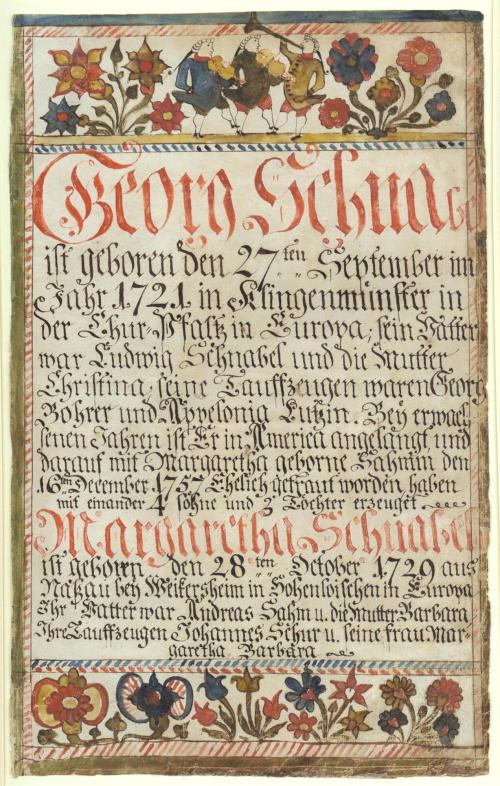 Georg Schnabel
ist geboren den 27ten September im
Jahr 1721 in Klingenmünster in
der Chur-Pfaltz in Europa, sein Vatter
war Ludwig Schnabel und die Mutter
Christina, seine Tauffzeugen waren Georg
Bohrer und Appelonia Lutzin. Bey erwach
senen Jahren ist Er in America angelangt, und
darauf mit Margaretha geborne Sahmin den
16ten December 1757 Ehelich getraut worden, haben
mit einander 4 söhne und 3 Töchter erzeuget
Margaretha Schnabel
ist geboren den 28ten October 1729 aus
Naßau bey Weikersheim in Hohenloischen in Europa
Ihr Vatter war Andreas Sahm u. die Mutter Barbara
Ihre Tauffzeugen Johannes Schur u. seine frau Mar-
garetha Barbara